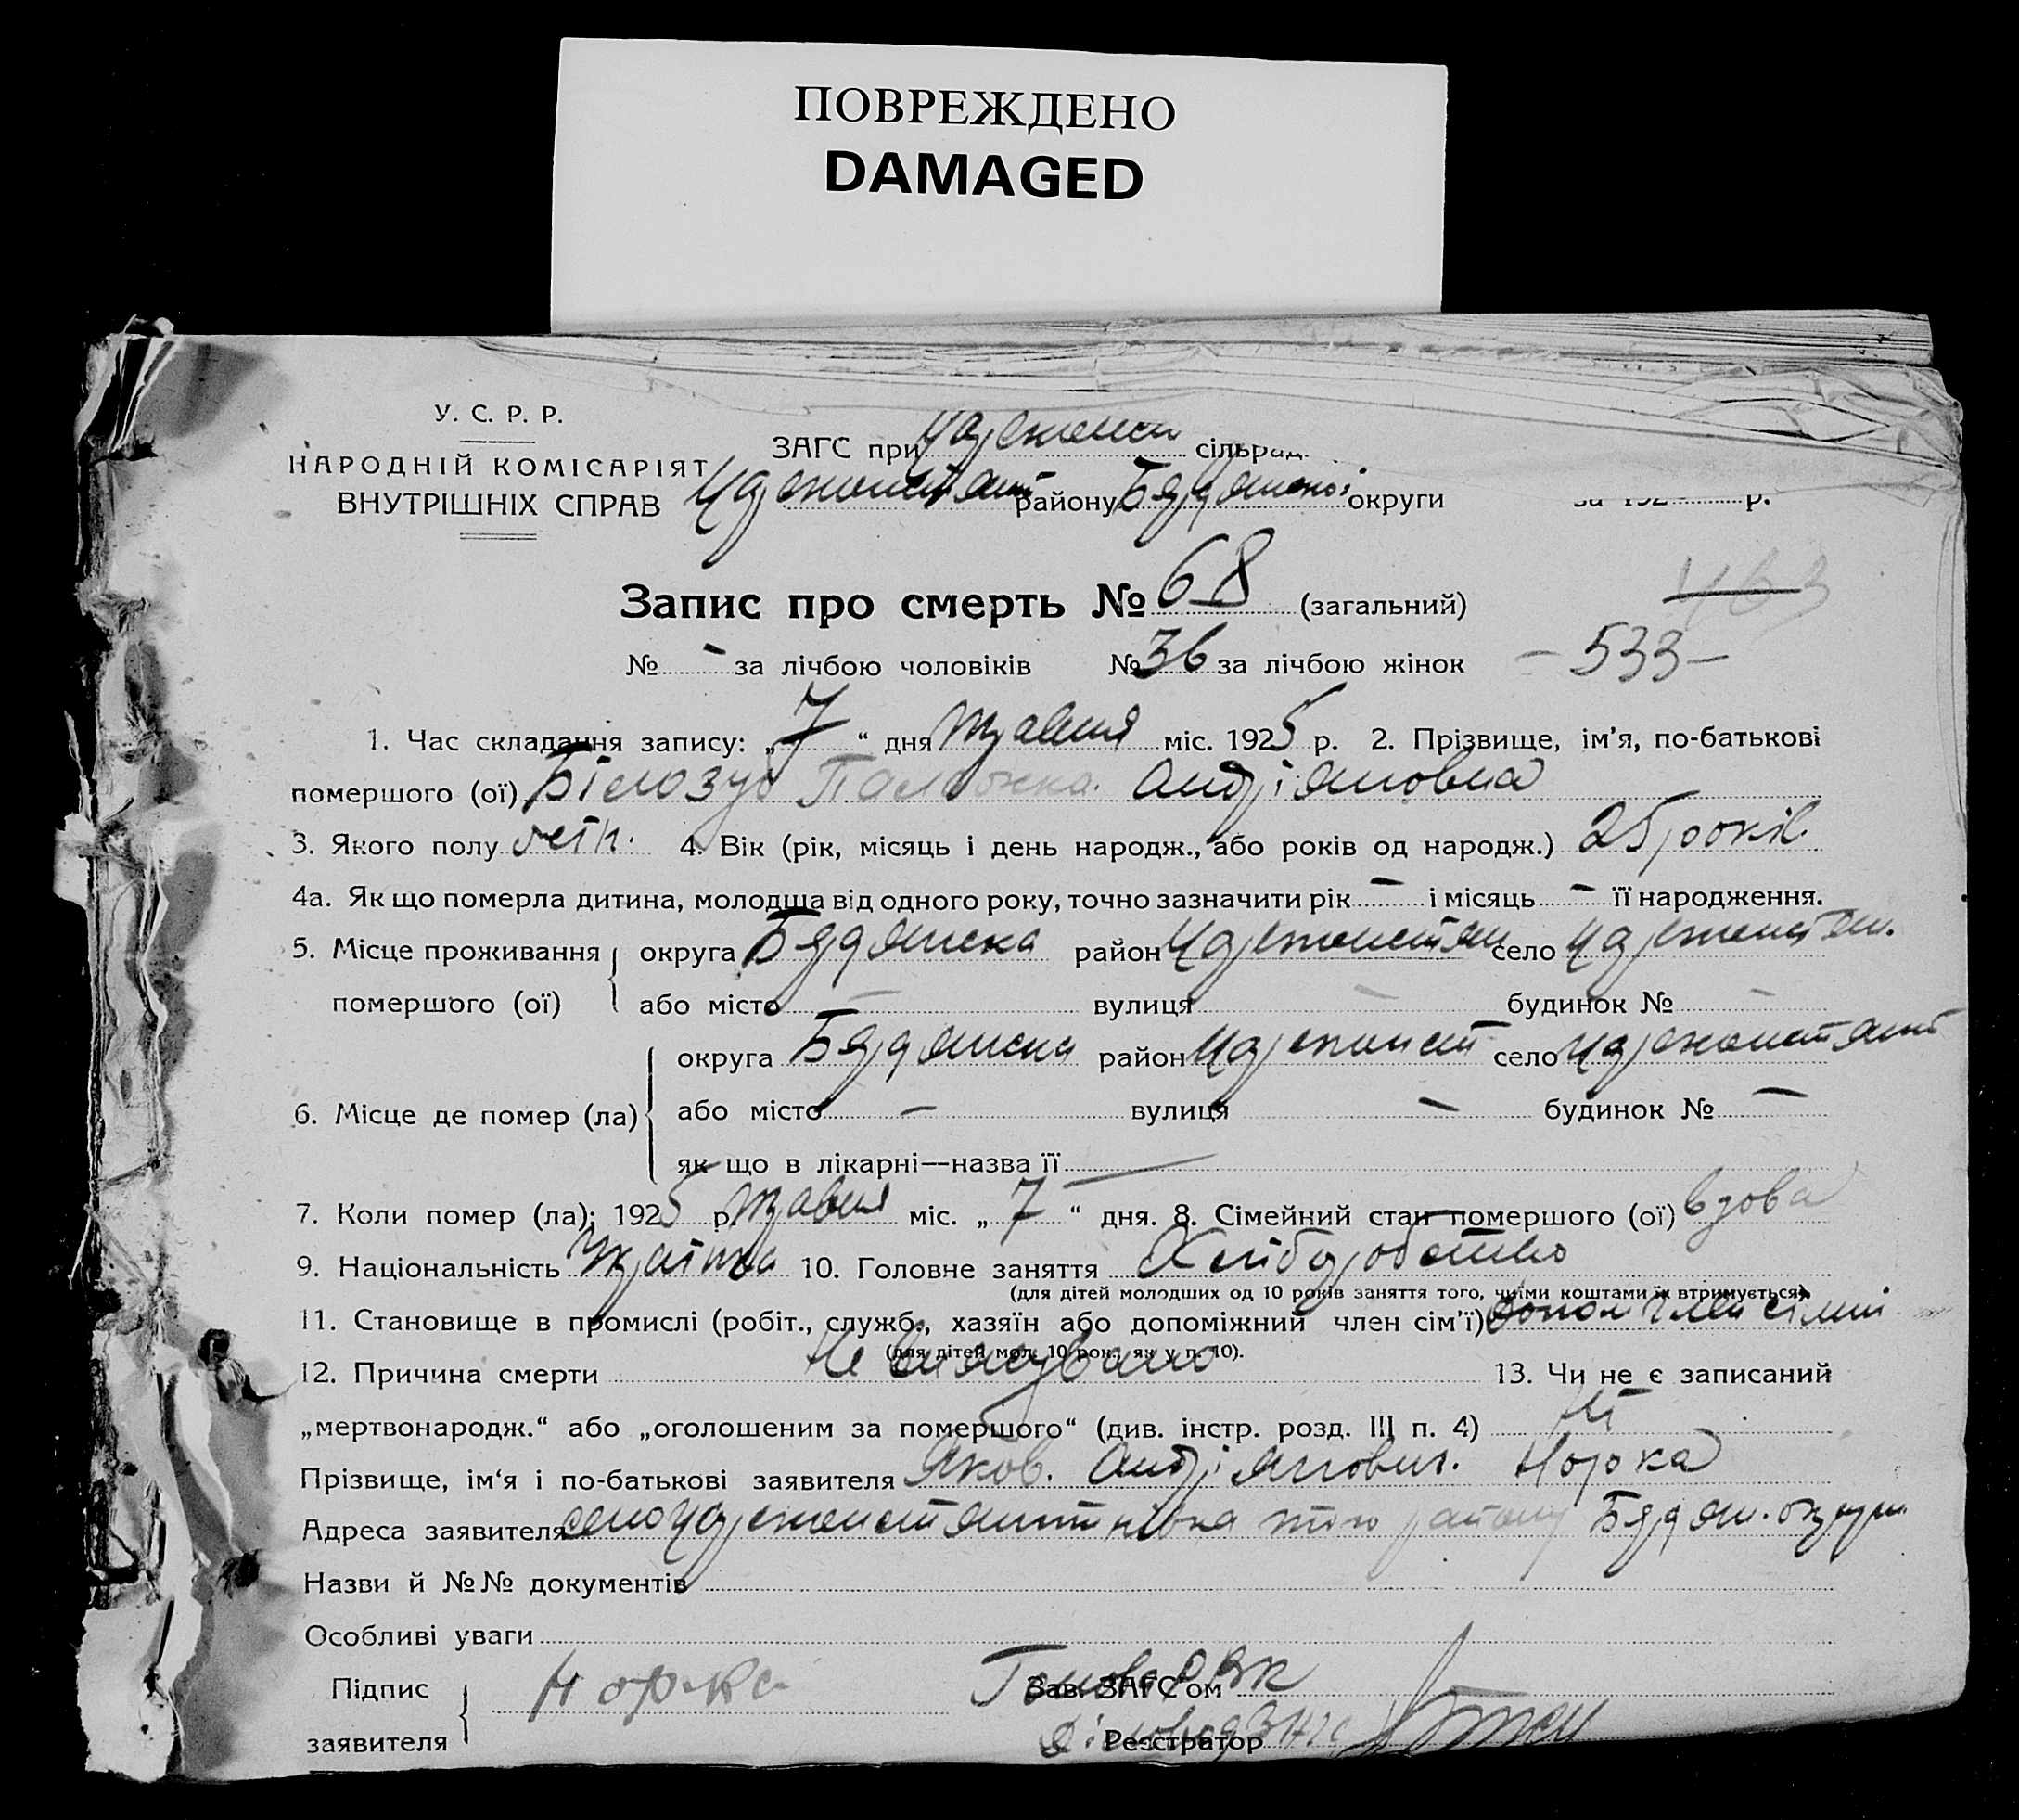 ПОВРЕЖДЕНО
DAMAGED
У. С. Р. Р.
НАРОДНІЙ КОМІСАРІЯТ
ВНУТРІШНІХ СПРАВ
ЗАГС при сільрад.
району Бердянської округи за 192 р.
Запис про смерть № 68 (загальний)
463
№ - за лічбою чоловіків № 36 за лічбою жінок - 533 -
1. Час складання запису: „7“ дня травня міс. 1925 р. 2. Прізвище, ім'я, по-батькові
помершого (ої) Білозуб Палажка. Андріяновна
3. Якого полу жін. 4. Вік (рік, місяць і день народж., або років од народж.) 25 років.
4а. Як що померла дитина, молодща від одного року, точно зазначити рік - і місяць - її народження.
5. Місце проживання помершого (ої) округа Бердянска район Цареконстян село Цареконстян.
або місто - вулиця - будинок № -
6. Місце де помер (ла) округа Бердянска район Цареконст село Цареконстянт
або місто - вулиця - будинок № -
як що в лікарні—назва її —
7. Коли помер (ла): 1925 р травня міс. „7“ дня. 8. Сімейний стан помершого (ої) вдова
9. Національність 10. Головне заняття Хліборобство
(для дітей молодших од 10 років заняття того, чиїми коштами їх втримується)
11. Становище в промислі (робіт., служб., хазяїн або допоміжний член сім'ї) допом член сімї
(для дітей мол. 10 рок., як у п. 10).
12. Причина смерти Не 13. Чи не є записаний
„мертвонародж.“ або „оголошеним за помершого“ (див. інстр. розд. III п. 4) ні
Прізвище, ім'я і по-батькові заявителя Яков. Андріянович. Норка
Адреса заявителя село району Бердян. округи
Назви й №№ документів
Особливі уваги
Підпис заявителя Норка Голова РВК
Зав. ЗАГС'ом
Діловод ЗАГС
Реєстратор